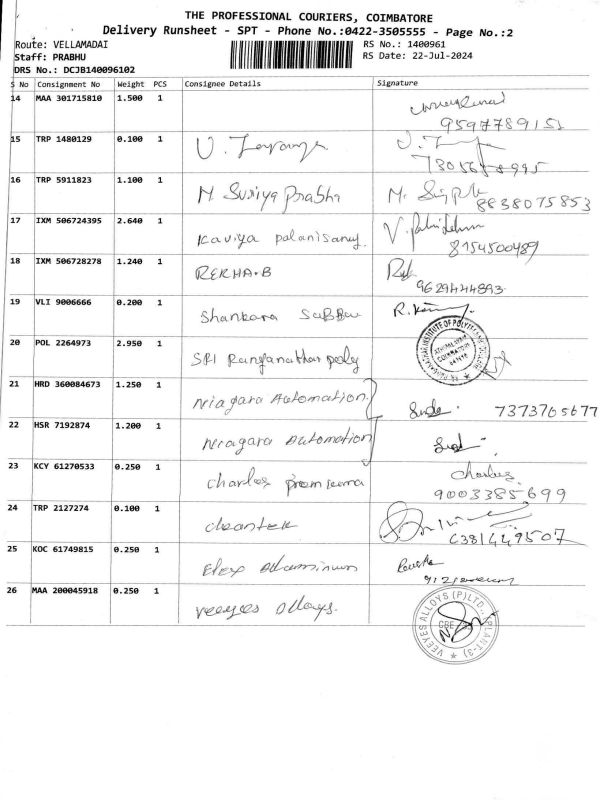 THE PROFESSIONAL COURIERS, COIMBATORE
Delivery Runsheet - SPT - Phone No.:0422-3505555 - Page No.:2
Route: VELLAMADAI
RS No.: 1400961
Staff: PRABHU
RS Date: 22-Jul-2024
DRS No.: DCJB140096102
S No Consignment No Weight PCS Consignee Details Signature
14 MAA 301715810 1.500 1
9597789151
15 TRP 1480129 0.100 1 U.
16 TRP 5911823 1.100 1 M Suriya Prabha M.
8838075853
17 IXM 506724395 2.640 1 Kaviya palanisamy. V.
8754500489
18 IXM 506728278 1.240 1 REKHA.B
9629444893
19 VLI 9006666 0.200 1 Shankara R.
20 POL 2264973 2.950 1 SRI Ranganathar poly
21 HRD 360084673 1.250 1 Niagara Automation
7373765677
22 HSR 7192874 1.200 1 Niagara Automation
23 KCY 61270533 0.250 1 Charles premkuma Charles
9003385699
24 TRP 2127274 0.100 1 cleantek
25 KOC 61749815 0.250 1 Elex Aluminium
26 MAA 200045918 0.250 1 veeyes Alloys.
VEEYES ALLOYS (P) LTD., (PLANT-3)
CBE